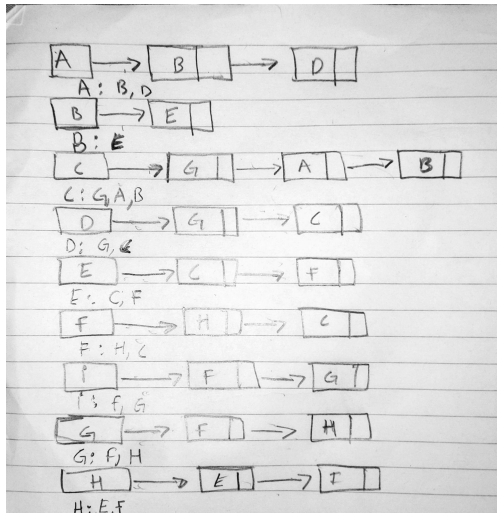 A B D
A: B, D
B E
B: E
C G A B
C: G, A, B
D G C
D: G, C
E C F
E: C, F
F H C
F: H, C
I F G
I: F, G
G F H
G: F, H
H E I
H: E, F